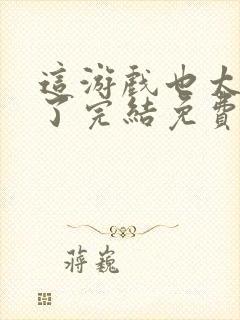 這游戲也太
了完結免費
蔣巍